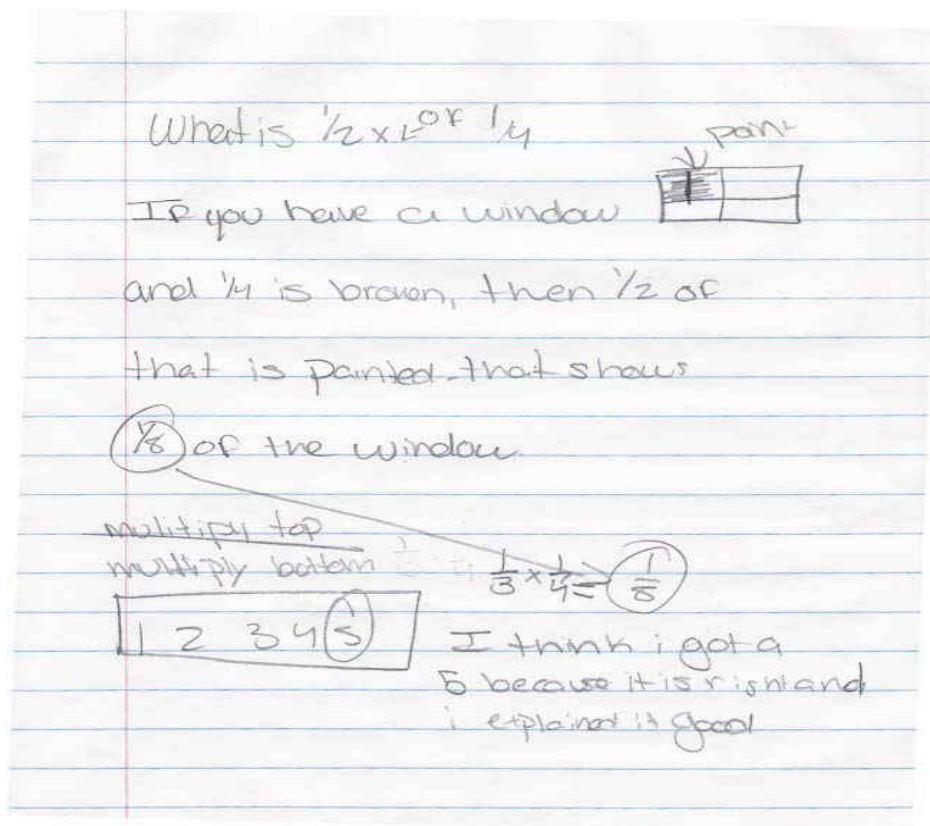 What is 1/2 x of 1/4
paint
If you have a window
and 1/4 is brown, then 1/2 of
that is painted that shows
1/8 of the window.
mulitipy top
multiply bottom
1/3 x 1/4 = 1/8
1 2 3 4 5
I think i got a
5 because it is right and
i explained it good